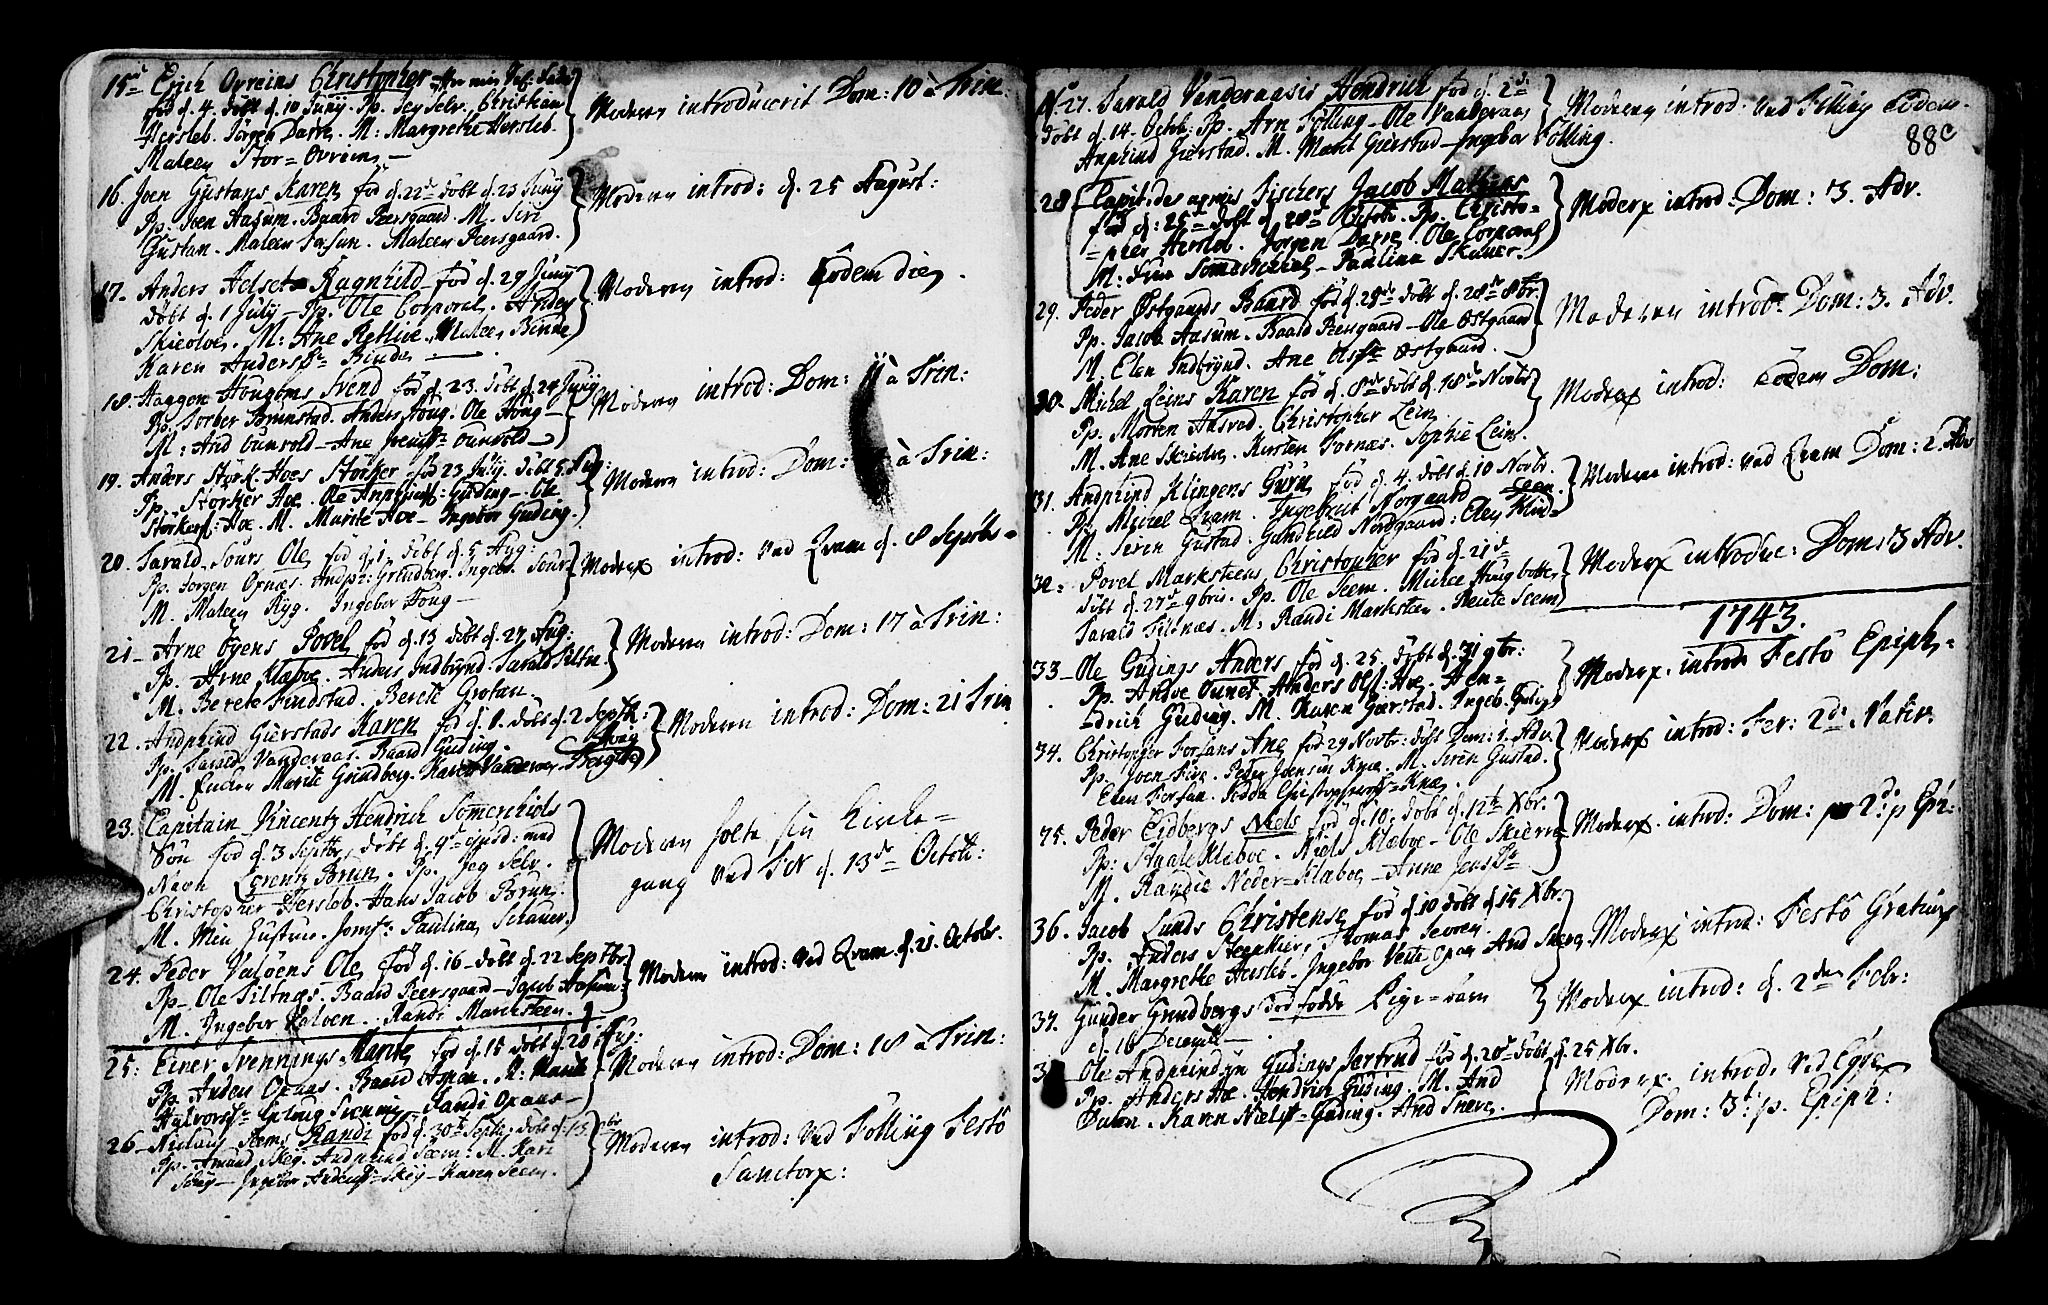 15. Erich Ovreins Christopher
fød d. 4. döbt d. 10 Junij. Pp. Jeg Selv. Christian
Hersleb. Jörgen Darre. M: Margrethe Hersleb.
Maleen Stor=Ovrein
Moderen introducerit Dom: 10 à Trin:
16. Joen Gustans Karen fød d. 22 döbt d. 23 Junij
Pp. Joen Aasum. Baard Peersgaard. M. Siri
Gustan. Maleen Maleen Peersgaard.
Moderen introd: d. 25 August:
17. Anders Helset Ragnild fød d. 29 Junij
döbt d. 1 July Pp. Ole Corporal. Anders
Skiedve. M: Ane Maleen Binde
Karen Anders Binde
Moderen introd: Eodem die.
18. Haagen Hougoms Svend fød d. 23. döbt d. 29 Junij
Pp. Torber Brunstad. Anders Houg. Ole Houg
M: And Ounvold Ane Ounvold
Moderen introd: Dom: 11 à Trin:
19. Anders Störk Hoes Storker fød 23 July. döbt 5. Aug:
Pp. Storker Hoe. Ole Guding. Ole
Storkers: Hoe. M. Marite Hoe Ingebor Guding.
Moderen introd: Dom: à Trin:
20. Tarald Sours Ole fød d. 1. döbt d. 5 Aug:
Pp. Jörgen Opnæs. Andph: Grindberg. Ingebr. Sour
M. Maleen Ryg. Ingebor Houg
Moderx introd: ved Qvam d. 8 Septbr
21 Arne Öyens Povel fød d. 13 döbt d. 27 Aug:
Pp. Arne Klæboe. Anders Indbrynd. Tarald Tiltn.
M. Berete Findstad. Berete Grotan.
Moderen introd: Dom: 17 à Trin:
22. Andphind Gierstads Karen fød d. 1. döbt d. 2 Septbr:
Pp. Tarald Vanderaas. Baard Guding. Houg
M. Marite Grindberg. Karen Vanderaas. Bergitte
Moderen introd: Dom: 21 Trin
23. Capitain Vincentz Hendrich Somerchiols
Sön fød d. 3 Septbr, döbt d. 9 ejusd: med
Navn Lorentz Brun. Pp. Jeg Selv.
Christopher Hersleb. Hans Jacob Brun.
M. Min Hustrue. Jomf: Paulina Schauer.
Moderen holte sin Kirke=
gang ved Tev d. 13de Octobr:
24. Peder Valöens Ole fød d. 16 döbt d. 22 Septbr
Pp. Ole Tiltnæs. Baard Peersgaard. Jacob Aasum
M. Ingebor Valöen. Randi Marcksteen.
Moderen introd: ved Qvam d. 21. Octobr.
25: Einer Svennings Marite fød d. 15 döbt d. 20 Aug:
Pp. Anders Opnæs. Baard Agnan. M: Marite
Halvors Giteug Svenning. Randi Opnæs
Moderen introd: Dom: 18 à Trin:
26 Nielaus Hems Randi fød d. 30 Septbr. döbt d. 15 br
Pp. Amund Skey. Andphind Seem: M. Kari
Skey Ingebor Anders Skey Karen Seem.
Moderen introd: ved Fölling Festo
Sanctorx:
88c
27. Tarald Vanderaasis Hendrich fød d. 2de
döbt d. 14. Octob: Pp. Arn Fölling Ole Vanderaas
Anphind Gierstad. M. Marit Gierstad Ingebor Fölling.
Moderen introd: ved Fölling Eodem.
28 Capit: des armis Fischers Jacob Mathias
fød d: 25 döbt d. 28 Octobr. Pp. Christo=
=pher Hersleb. Jörgen Darre. Ole Corporal
M. Fru Somerschiel Paulina Skauer.
Moderx introd: Dom: 3. Adv.
29. Peder Østgaards Baard fød d. 25 döbt d. 28 8br.
Pp. Jacob Aasum. Baard Peersgaard Ole Østgaard
M. Elen Indbrynd. Ane Ols Østgaard.
Moderen introd: Dom: 3. Adv.
30. Michel Leins Karen fød d. 8de döbt d. 18de Novbr
Pp. Morten Aasvad. Christopher Lein.
M. Ane Skiedve. Kirsten Fornæs. Sophie Lein.
Moderx introd: Eodem Dom:
31. Andphind Klingens Gurn fød d. 4. döbt d. 10 Novbr.
Pp. Michel Qvam. Ingebret Norgaard
M. Siren Gustad. Gundhild Nordgaard: Elen Klind=
Moderen introd: ved Qvam Dom: 2. Adv
32 Povel Marksteens Christopher fød d. 21de
döbt d. 27de 9bris. Pp. Ole Seem. Michel
Tarald Tiltnæs. M: Randi Marksteen. Berite Seem
Moderx introduc: Dom: 3 Adv.
1743.
33 Ole Gudings Anders fød d. 25. döbt d. 31 9br:
Pp. Andve Ounet. Anders Ols: Hoe. Hen=
=drich Guding. M. Karen Gierstad. Ingeb. Guding
Moderx. introd: Festo Epiph.
34. Christopher Forsans Ane fød 29 Novbr: döbt Dom: 1. Adv.
Pp. Joen Five. Peder Joensøn Knæ. M. Siren Gustad.
Elen Forsan. Pedda Christophers Knæ.
Moderx introd: Fer: 2de Nativ.
35. Peder Eidbergs Niels fød d. 10. döbt d. 12te Xbr.
Pp: Staale Klæboe. Niels Klæboe Ole Skierve
M. Randie Neder=Klæboe Anne Jens
Moderx. introd: Dom: 2d: p Epi:
36. Jacob Lunds Christense fød d. 10 döbt d. 15 Xbr.
Pp. Anders Steenkier. Thomas Sevren.
M. Margrethe Hersleb. Ingebor Veste Opnæs And Snerv
Moderx introd: Festo Gratiarx
37. Gunder Grindbergs död fødde Pige=barn
d. 16 Decembr
Moderx introd: d. 2den Febr:
38 Ole Andphindsøn Gudings Jertrud fød d. 20 döbt d. 25 Xbr.
Pp. Anders Hoe. Hendrich Guding. M. And
Dalem. Karen Niels Guding. And Snerve.
Moderx. introd: ved Egge
Dom: 3t: p. Epiph: